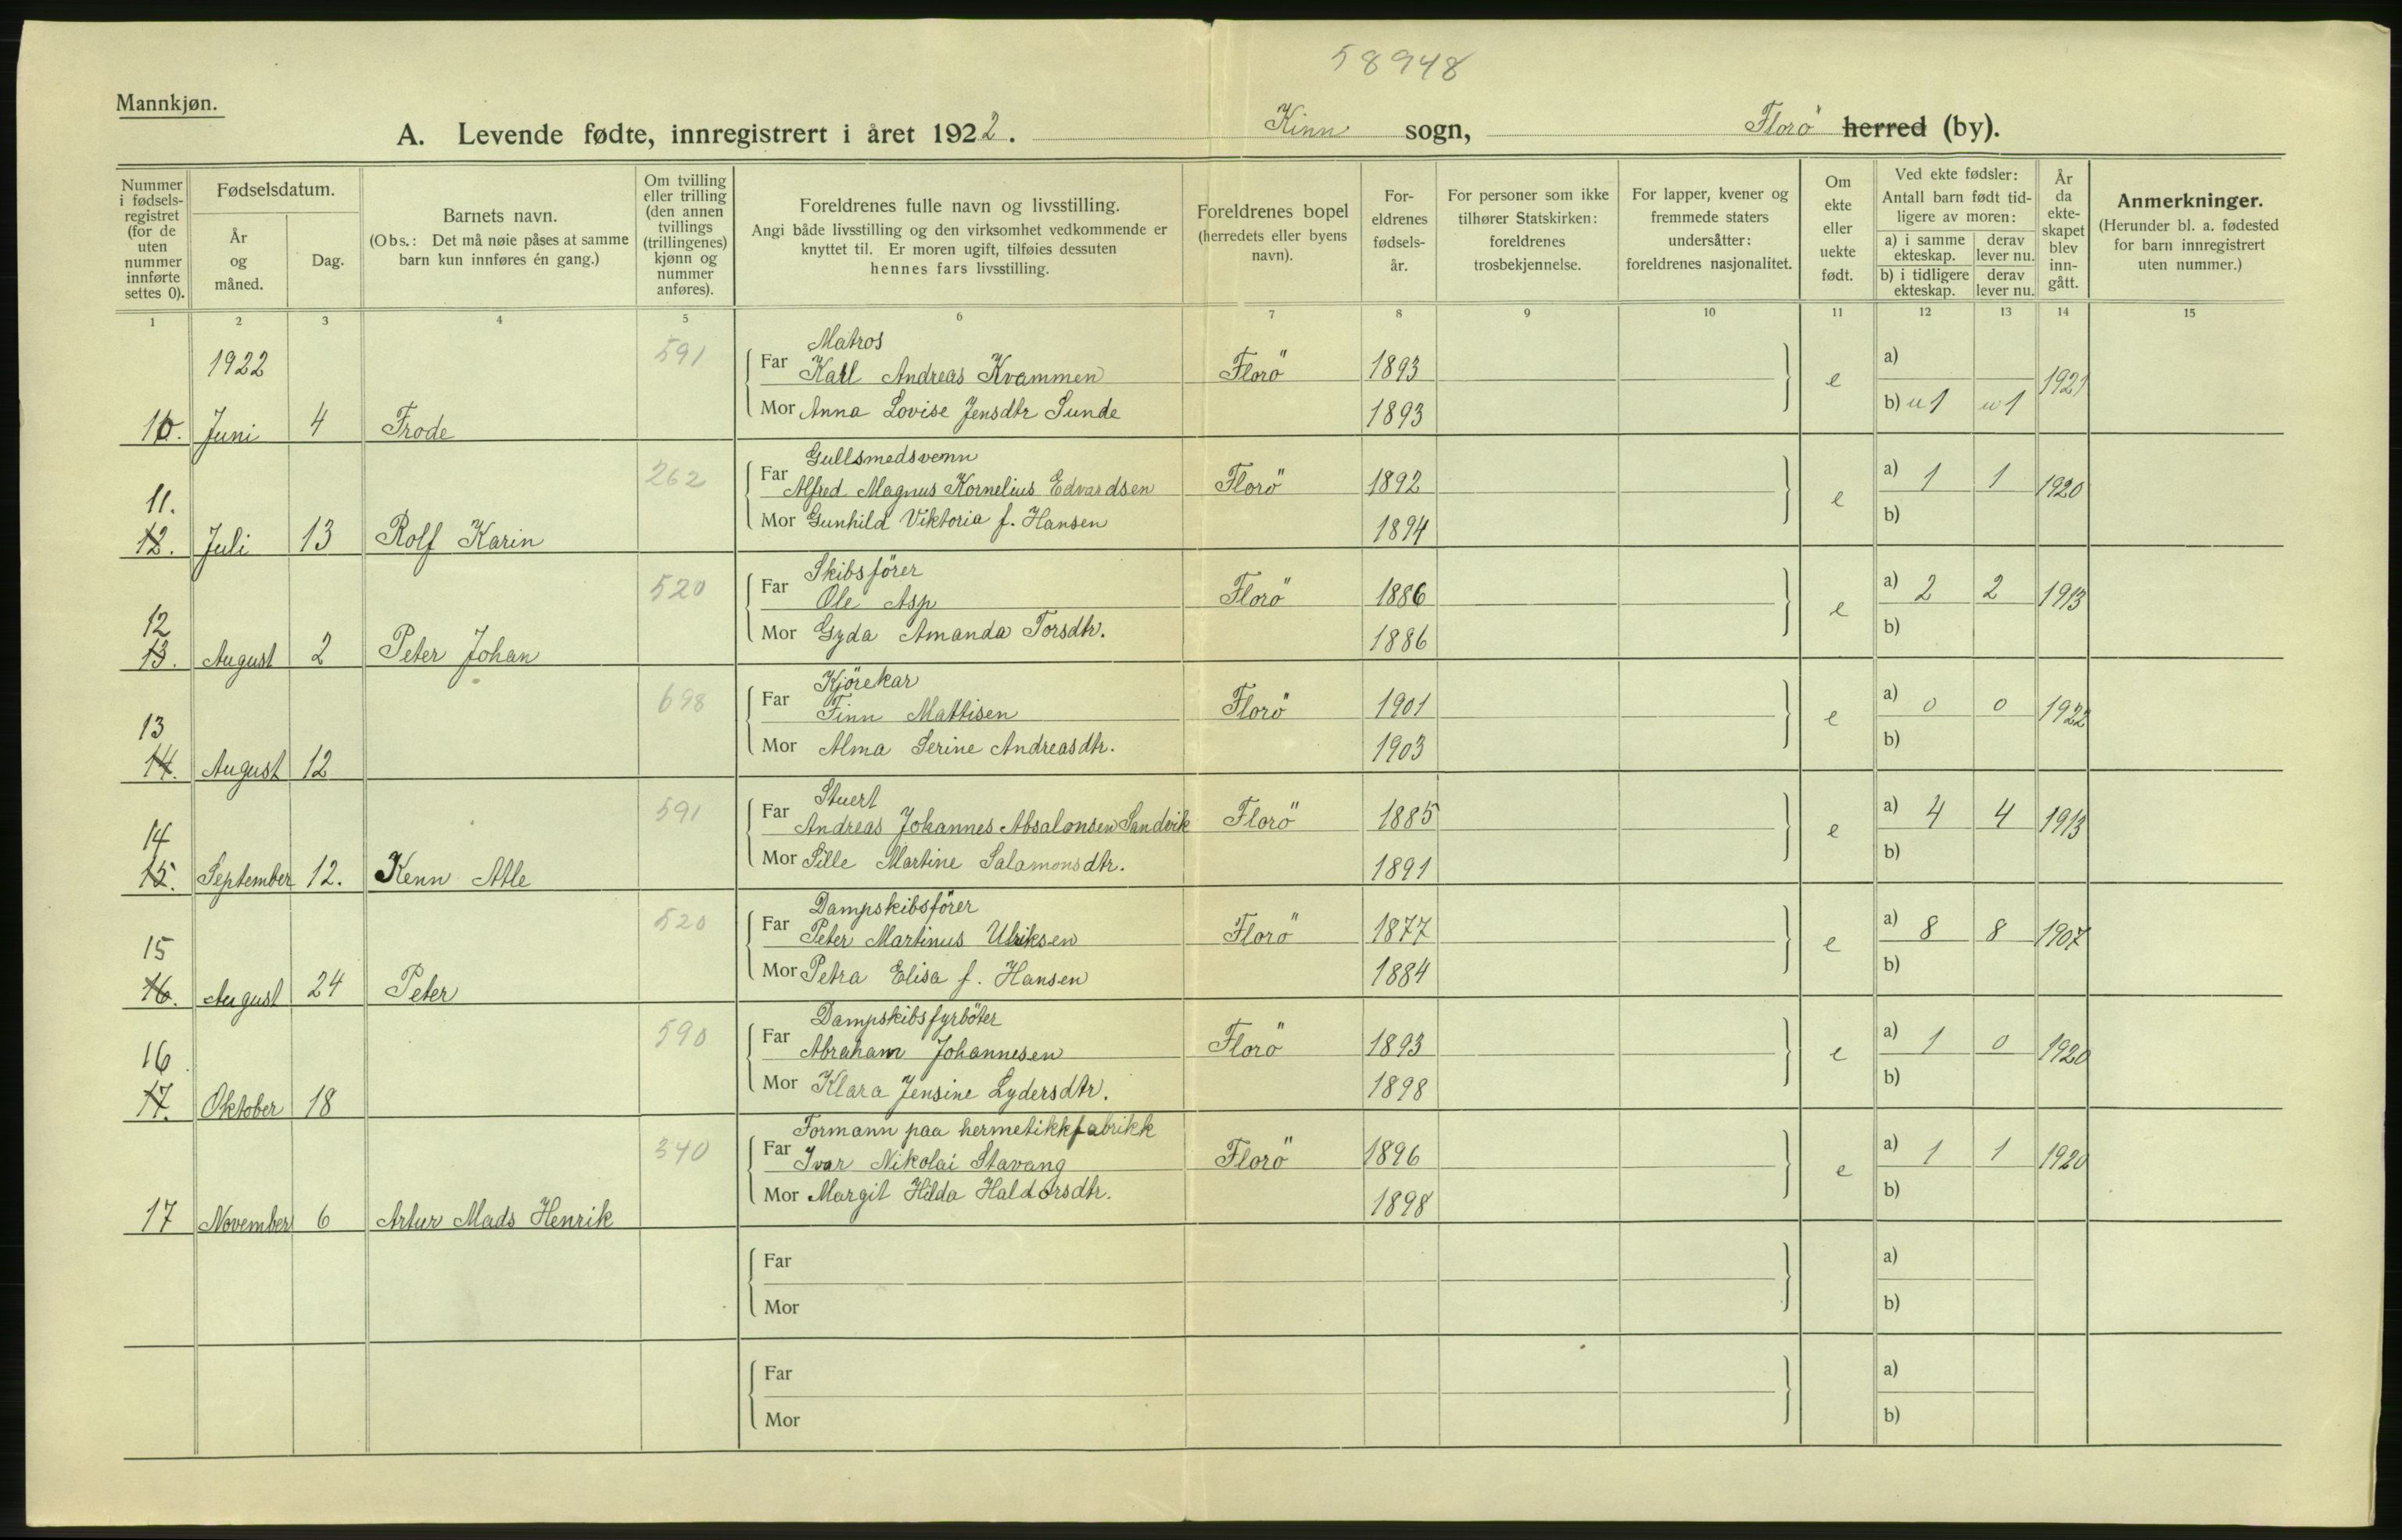 58948
Mannkjøn.
A. Levende fødte, innregistrert i året 1922. Kinn sogn, Florö herred (by).
Nummer i fødselsregistret (for de uten nummer innførte settes 0).
Fødselsdatum.
År og måned.
Dag.
Barnets navn.
(Obs.: Det må nøie påses at samme barn kun innføres én gang.)
Om tvilling eller trilling (den annen tvillings (trillingenes) kjønn og nummer anføres).
Foreldrenes fulle navn og livsstilling.
Angi både livsstilling og den virksomhet vedkommende er knyttet til. Er moren ugift, tilføies dessuten hennes fars livsstilling.
Foreldrenes bopel (herredets eller byens navn).
Foreldrenes fødselsår.
For personer som ikke tilhører Statskirken: foreldrenes trosbekjennelse.
For lapper, kvener og fremmede staters undersåtter: foreldrenes nasjonalitet.
Om ekte eller uekte født.
Ved ekte fødsler: Antall barn født tidligere av moren:
a) i samme ekteskap. derav lever nu.
b) i tidligere ekteskap. derav lever nu.
År da ekteskapet blev inngått.
Anmerkninger.
(Herunder bl. a. fødested for barn innregistrert uten nummer.)
1 2 3 4 5 6 7 8 9 10 11 12 13 14 15
1922 591 Matros
Far Karl Andreas Kvammen Florö 1893 e a) 1921
Mor Anna Lovise Jensdtr Sunde 1893 b) u1 u1
10. Juni 4 Frode
262 Gullsmedsvenn
Far Alfred Magnus Kornelius Edvardsen Florö 1892 e a) 1 1 1920
11.
Mor Gunhild Viktoria f. Hansen 1894 b)
12. Juli 13 Rolf Karin
520 Skibsförer
Far Ole Asp Florö 1886 e a) 2 2 1913
12
Mor Gyda Amanda Torsdtr. 1886 b)
13. August 2 Peter Johan
698 Kjörekar
Far Finn Mattisen Florö 1901 e a) 0 0 1922
13
Mor Alma Serine Andreasdtr. 1903 b)
14. August 12
591 Stuert
Far Andreas Johannes Absalonsen Sandvik Florö 1885 e a) 4 4 1913
14
Mor Sille Martine Salamonsdtr. 1891 b)
15. September 12. Kenn Atle
520 Dampskibsförer
Far Peter Martinus Ulriksen Florö 1877 e a) 8 8 1907
15
Mor Petra Elisa f. Hansen 1884 b)
16. August 24 Peter
590 Dampskibsfyrböter
Far Abraham Johannesen Florö 1893 e a) 1 0 1920
16
Mor Klara Jensine Lydersdtr. 1898 b)
17. Oktober 18
340 Formann paa hermetikkfabrikk
Far Ivar Nikolai Stavang Florö 1896 e a) 1 1 1920
Mor Margit Hilda Haldorsdtr. 1898 b)
17 November 6 Artur Mads Henrik
Far a)
Mor b)
Far a)
Mor b)